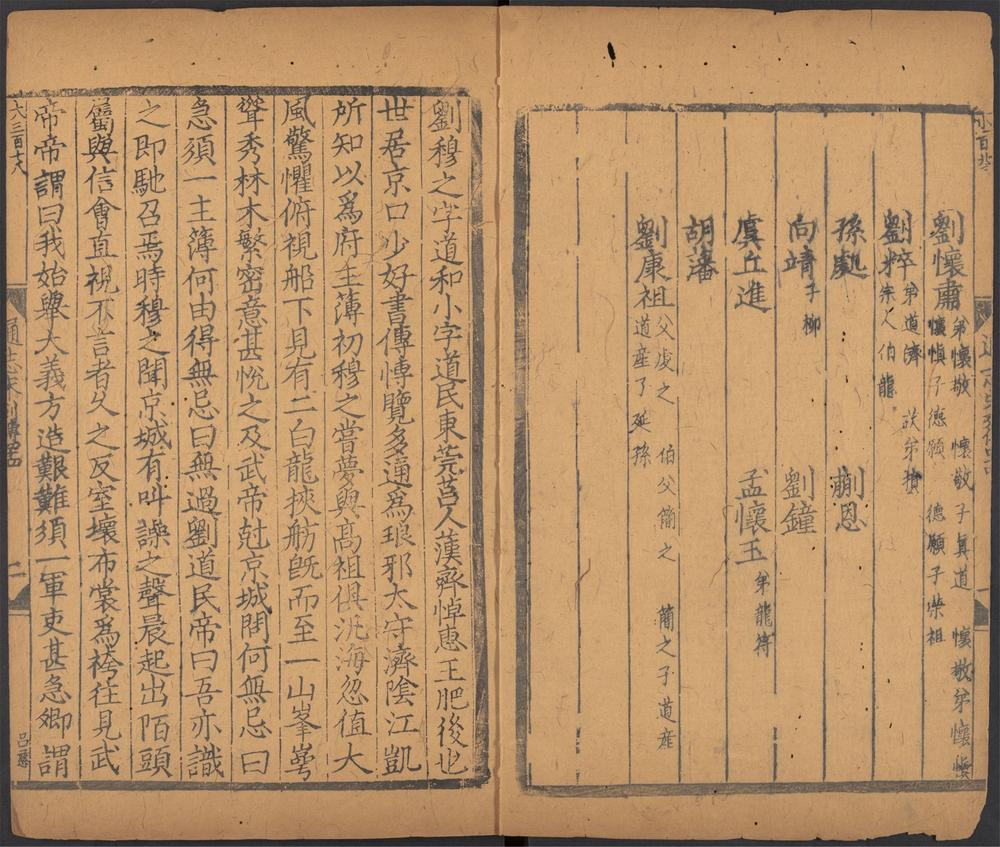 劉懷肅 弟懷敬 懷敬子真道 懷敬弟懷慎
懷慎子德願 德願子榮祖
劉粹 弟道濟 族弟損
宗人伯龍
孫處 蒯恩
向靖 子柳 劉鐘
虞丘進 孟懷玉 弟龍符
胡藩
劉康祖 父虔之 伯父簡之 簡之子道産
道産子延孫
劉穆之字道和小字道民東莞莒人漢齊悼惠王肥後也
世居京口少好書傳博覽多通為琅邪太守濟陰江凱
所知以為府主薄初穆之嘗夢與高祖俱汎海忽值大
風驚懼俯視船下見有二白龍挾舫既而至一山峯崿
聳秀林木繁密意甚悅之及武帝尅京城問何無忌曰
急須一主簿何由得無忌曰無過劉道民帝曰吾亦識
之即馳召焉時穆之聞京城有叫譟之聲晨起出陌頭
屬與信會直視不言者久之反室壞布裳為袴往見武
帝帝謂曰我始舉大義方造艱難須一軍吏甚急卿謂
六三百十六
通志宋列傳四
二